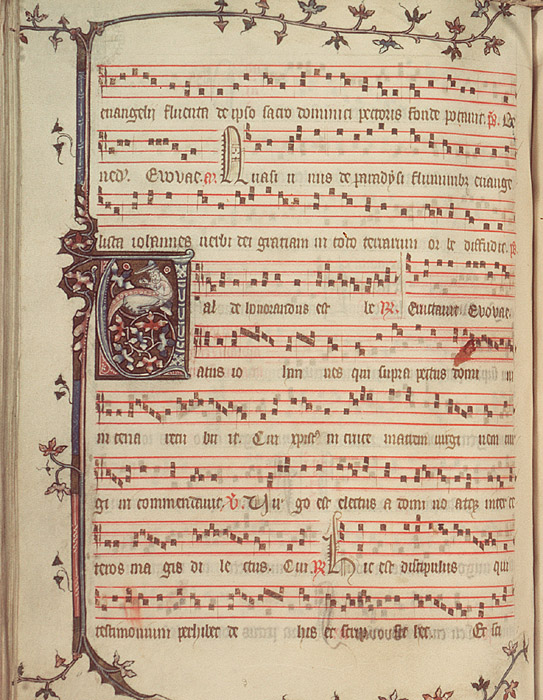 euangelij fluenta de ipso sacro dominici pectoris fonte potauit. ps. Be
ned. Evovae. a. Quasi u nus de paradysi fluminibz euange
lista iohannes uerbi dei gratiam in toto terrarum or be diffudit. ps.
Val de honorandus est be R. Euctauit Evovae.
atus io han nes qui supra pectus domi ni
in cena recu bu it. Cui xpistus in cruce matrem uirgi nem uir
gi ni commendauit. V. Vir go est electus a domi no atqz inter ce
teros ma gis di le ctus. Cui R. Hic est discipulus qui
testimonium perhibet de his et scripsit hec. Et sci